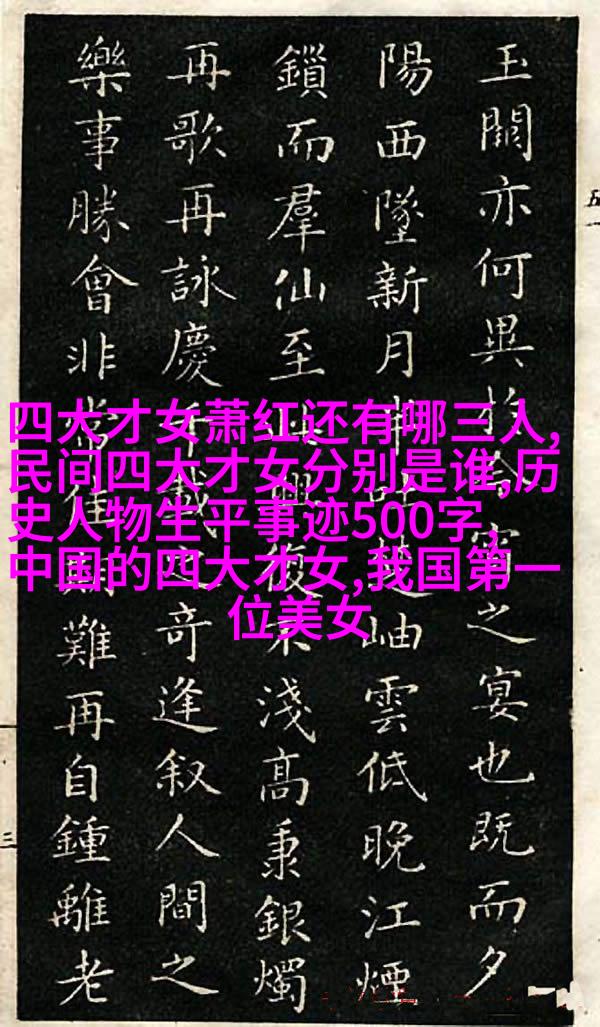 玉關亦何異於今宵之宴也既而夕
陽西墜新月半吐楚岫雲低晚江煙
鎖而羣仙至此興復不淺高秉銀燭
再歌再詠慶千載之奇逢叙人間之
樂事勝會非常佳期難再自鍾離老
四大才女萧红还有哪三人,
民间四大才女分别是谁,历
史人物生平事迹500字,
中国的四大才女,我国第一
位美女
五一
三